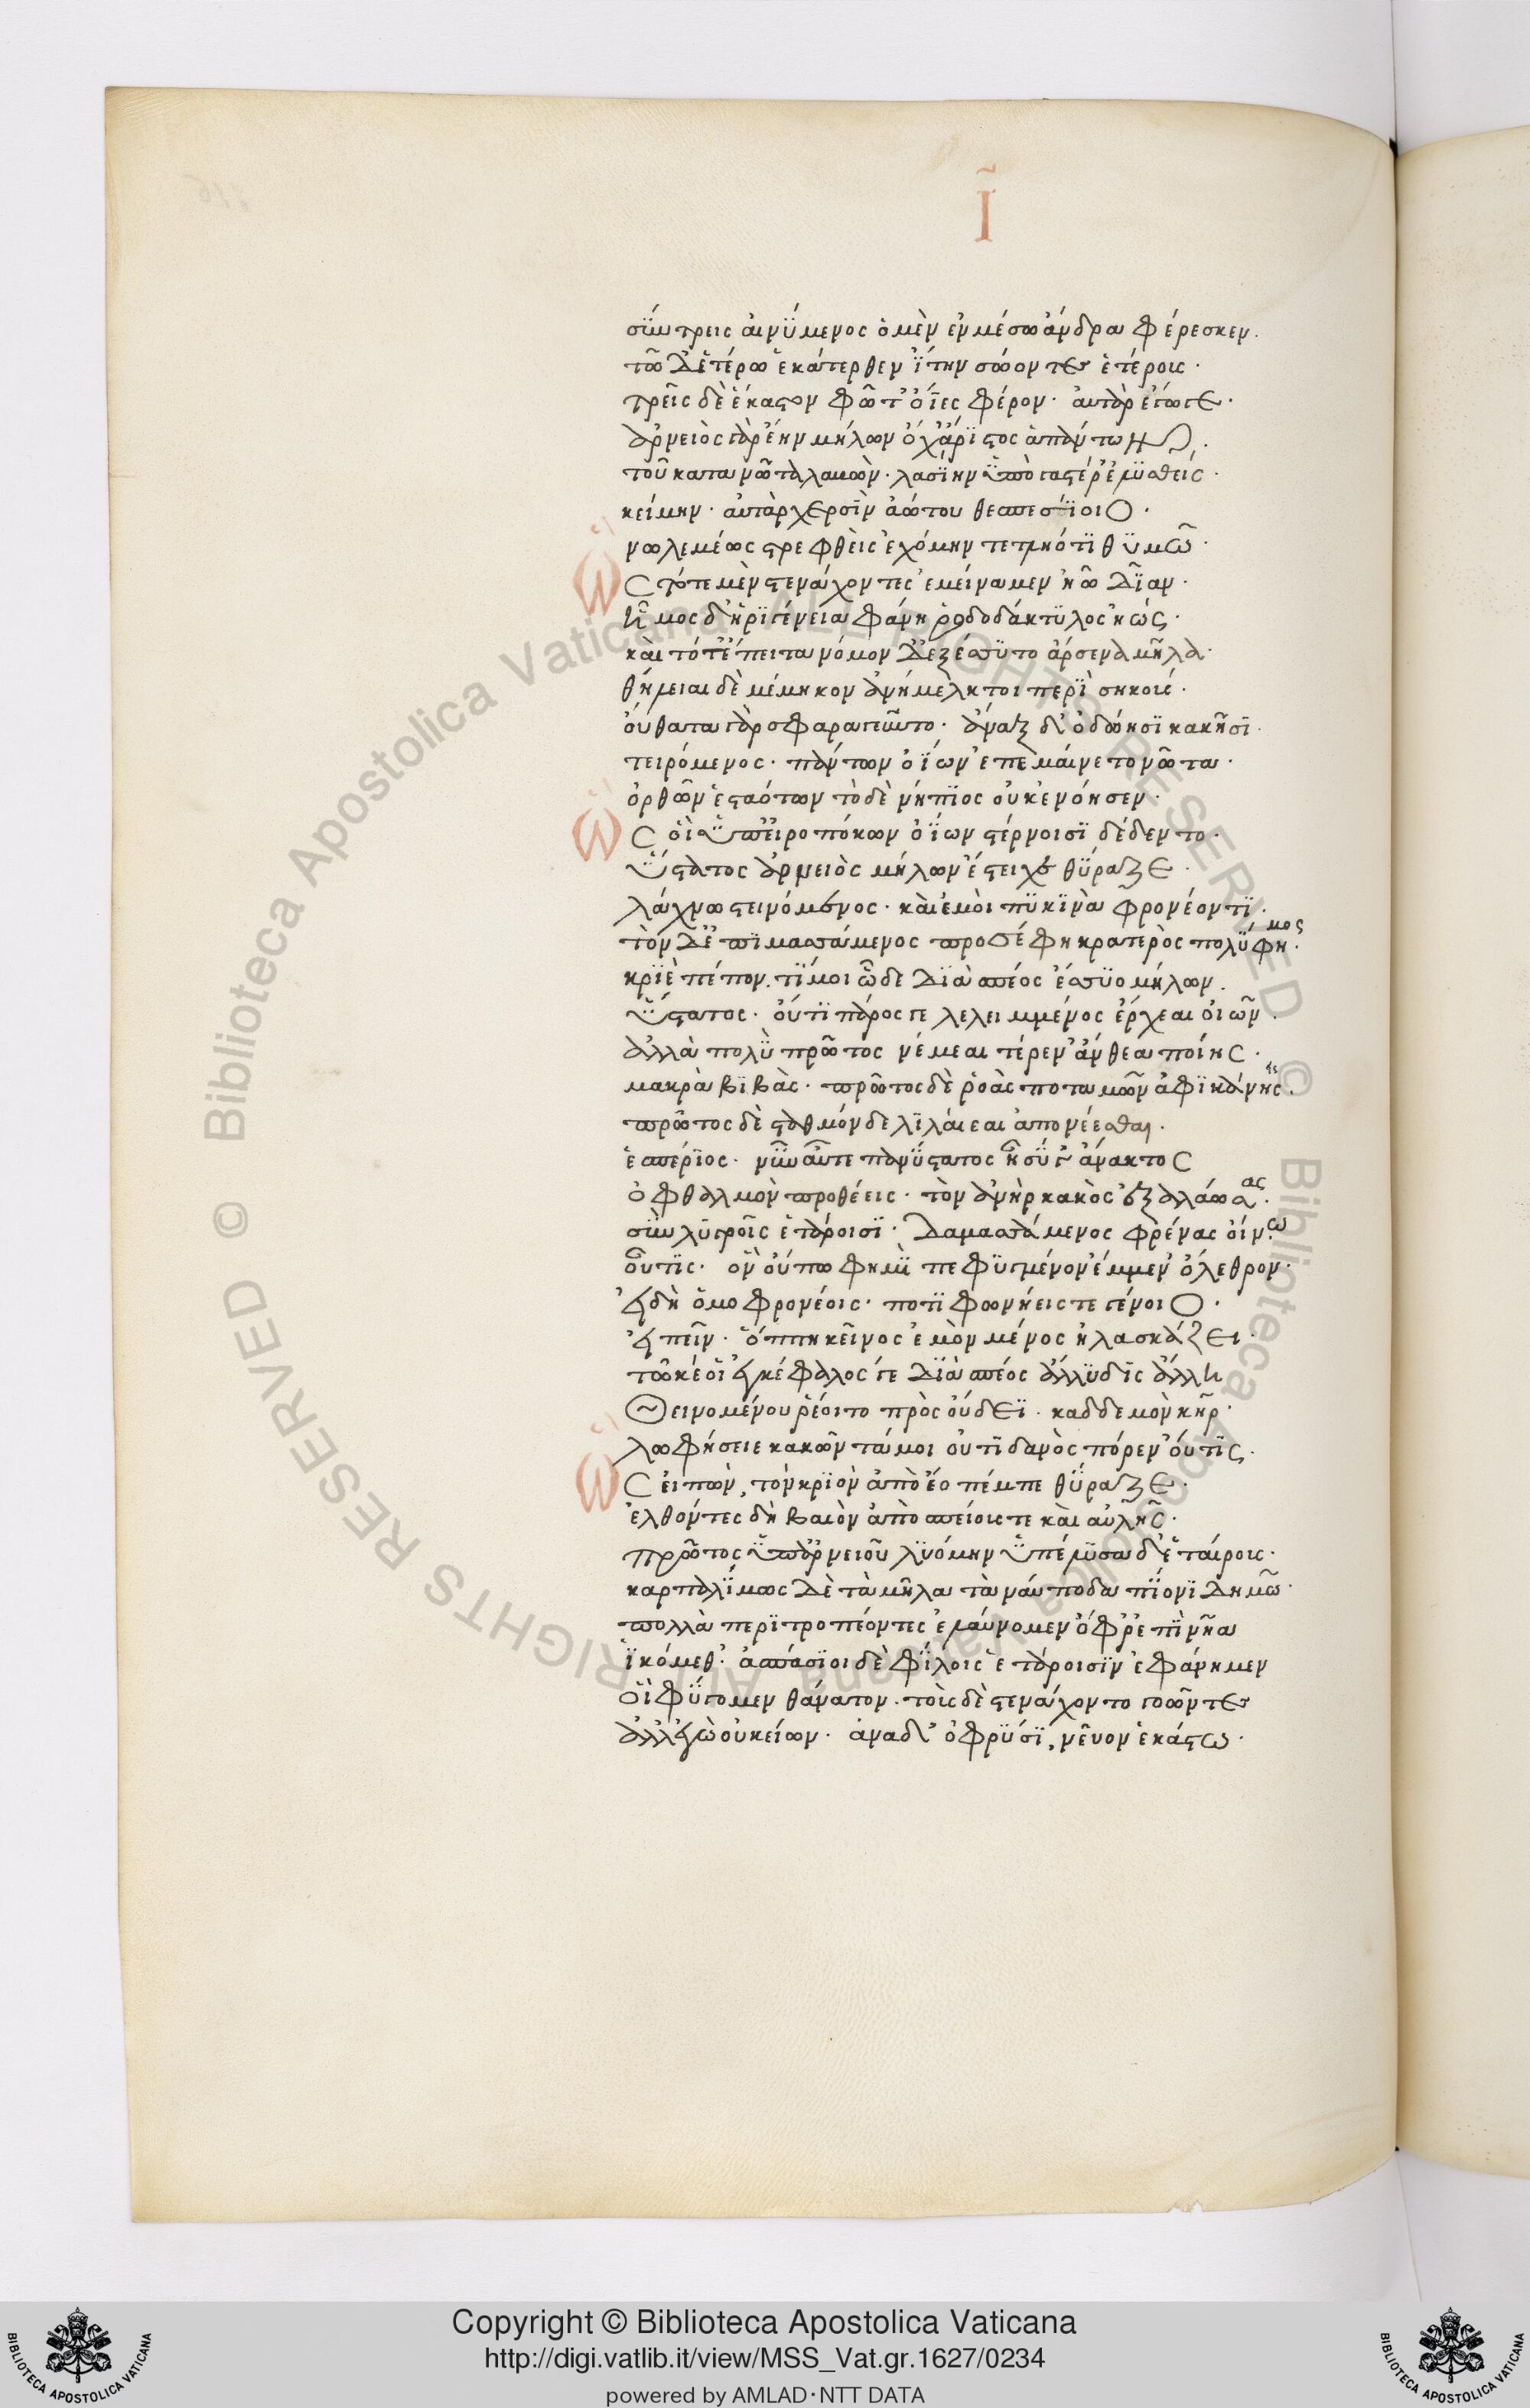 Ι
σὺν τρεῖς αἰνύμενος ὁ μὲν ἐν μέσω ἄνδρα φέρεσκεν.
τὼ δ' ἑτέρω ἑκάτερθεν ἴτην σώοντες ἑτέροις·
τρεῖς δὲ ἕκαστον φῶτ' ὄϊες φέρον· αὐτὰρ ἔγωγε·
ἀρνειὸς γὰρ ἔην μήλων ὄχ' ἄριστος ἁπάντων·
τοῦ κατα νῶτα λαβὼν· λασίην ὑπὸ γαστέρ' ἐλυσθείς·
κείμην· αὐτὰρ χερσὶν ἀώτου θεσπεσίοιο·
νωλεμέως στρεφθεὶς ἐχόμην τετληότι θυμῶ·
Ὣς τότε μὲν στενάχοντες ἐμείναμεν ἠῶ δῖαν·
ἦμος δ' ἠριγένεια φάνη ῥοδοδάκτυλος ἠώς·
καὶ τότ' ἔπειτα νόμον δ' ἐξέσσυτο ἄρσενα μῆλα·
θήλειαι δὲ μέμηκον ἀνήμελκτοι περὶ σηκούς·
οὔθατα γὰρ σφαραγεῦντο· ἄναξ δ' ὀδύνῃσι κακῇσι·
τειρόμενος· πάντων ὀΐων ἐπεμαίνετο νῶτα·
ὀρθῶν ἑσταότων τὸ δὲ νήπιος οὐκ ἐνόησεν·
Ὣς οἱ ὑπ' εἰροπόκων ὀΐων στέρνοισι δέδεντο·
ὕστατος ἀρνειὸς μήλων ἔστειχε θύραζε·
λάχνω στεινόμενος· καὶ ἐμοὶ πυκινὰ φρονέοντι·
τὸν δ' ἐπιμασσάμενος προσέφη κρατερὸς πολύφημος·
κριὲ πέπον. τί μοι ὧδε διὰ σπέος ἔσσυο μήλων.
ὕστατος· οὔτι πάρος γε λελειμμένος ἔρχεαι οἰῶν·
ἀλλὰ πολὺ πρῶτος νέμεαι τέρεν' ἄνθεα ποίης·
μακρὰ βιβὰς· πρῶτος δὲ ῥοὰς ποταμῶν ἀφικάνῃς·
πρῶτος δὲ σταθμόνδε λιλαίεαι ἀπονέεσθαι·
ἑσπέριος· νῦν αὖτε πανύστατος ἦ σύ γ' ἄνακτος
ὀφθαλμὸν ποθέεις· τὸν ἀνὴρ κακὸς ἐξαλάωσας·
σὺν λυγροῖς ἑτάροισι· δαμασσάμενος φρένας οἴνω
οὖτις· ὃν οὔπω φημὶ πεφυγμένον ἔμμεν ὄλεθρον·
εἰ δὴ ὁμοφρονέοις· ποτιφωνήεις τε γένοιο·
εἰπεῖν· ὅππη κεῖνος ἐμὸν μένος ἠλασκάζει·
τῶ κέ οἱ ἐγκέφαλος γε διὰ σπέος ἄλλυδις ἄλλη
Θεινομένου ῥέοιτο πρὸς οὔδεϊ· καδδ' ἐμὸν κῆρ·
λωφήσειε κακῶν τά μοι οὐτιδανὸς πόρεν οὔτις·
Ὣς εἰπὼν, τὸν κριὸν ἀπὸ ἕο πέμπε θύραζε·
ἐλθόντες δὴ βαιὸν ἀπὸ σπείους τε καὶ αὐλῆς·
πρῶτος ὑπ' ἀρνειοῦ λυόμην ὑπέλυσα δ' ἑταίρους·
καρπαλίμως δὲ τὰ μῆλα ταναύποδα πίονι δημῶ·
πολλὰ περιτροπέοντες ἐλαύνομεν ὄφρ' ἐπὶ νῆα
ἱκόμεθ'· ἀσπάσιοι δὲ φίλοις ἑτάροισιν ἐφάνημεν
οἳ φύγομεν θάνατον· τοὺς δὲ στενάχοντο γοῶντες
ἀλλ' ἐγὼ οὐκ εἴων· ἀνα δ' ὀφρύσι, νεῦον ἑκάστω·
Copyright © Biblioteca Apostolica Vaticana
http://digi.vatlib.it/view/MSS_Vat.gr.1627/0234
powered by AMLAD·NTT DATA
BIBLIOTECA APOSTOLICA VATICANA
BIBLIOTECA APOSTOLICA VATICANA
© Biblioteca Apostolica Vaticana ALL RIGHTS RESERVED
© Biblioteca Apostolica Vaticana ALL RIGHTS RESERVED